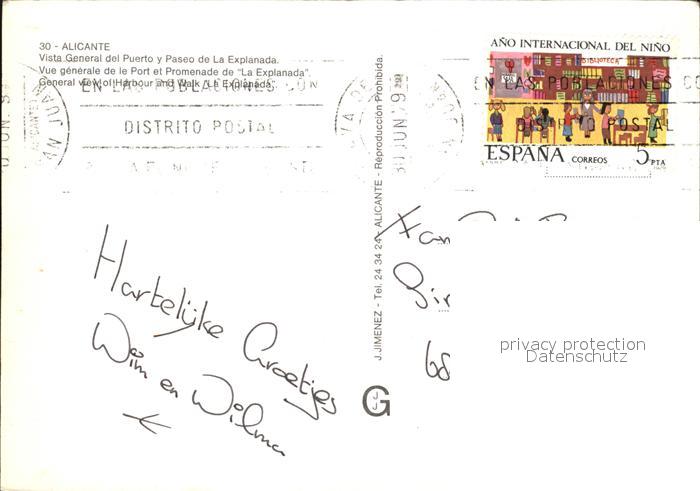 30 - ALICANTE
Vista General del Puerto y Paseo de La Explanada.
Vue générale de le Port et Promenade de "La Explanada".
General view of Harbour and Walk "La Explanada".
EN LAS POBLACIONES CON
DISTRITO POSTAL
30 JUN 9
J. JIMENEZ - Tel. 24 34 24 - ALICANTE - Reproducción Prohibida.
AÑO INTERNACIONAL DEL NIÑO
BIBLIOTECA
EN LAS POBLACIONES CO
DISTRITO POSTAL
ESPAÑA CORREOS 5 PTA
Hartelijke Groetjes
Wim en Wilma
privacy protection
Datenschutz